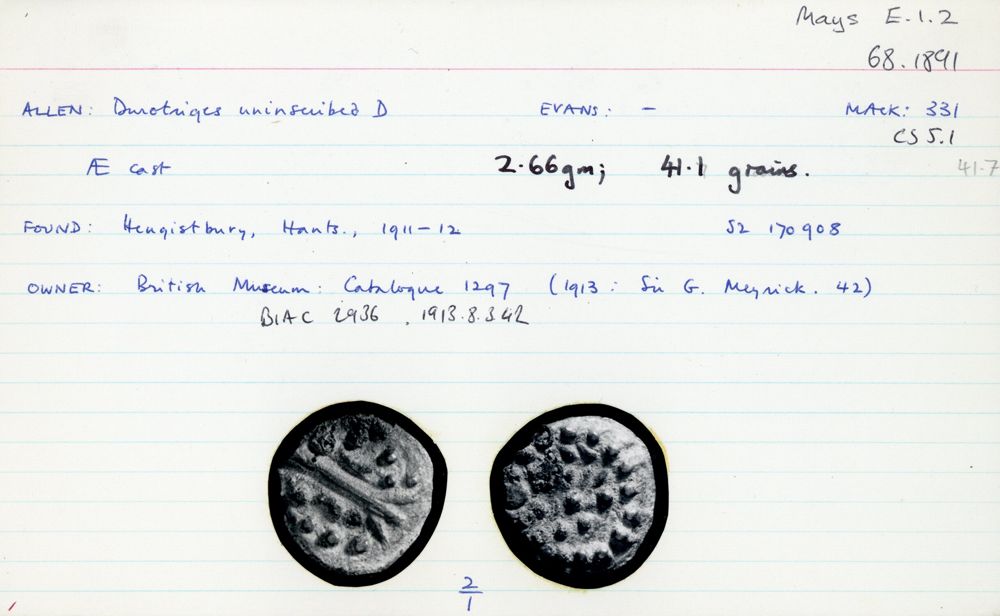 Mays E.1.2
68.1891
ALLEN: Durotriges uninscribed D EVANS: - MACK: 331
CS 5.1
Æ cast 2.66gm; 41.1 grains. 41.7
FOUND: Hengistbury, Hants., 1911-12 SZ 170908
OWNER: British Museum: Catalogue 1297 (1913: Sir G. Meyrick. 42)
BIAC 2936 . 1913.8.3.42
2
1